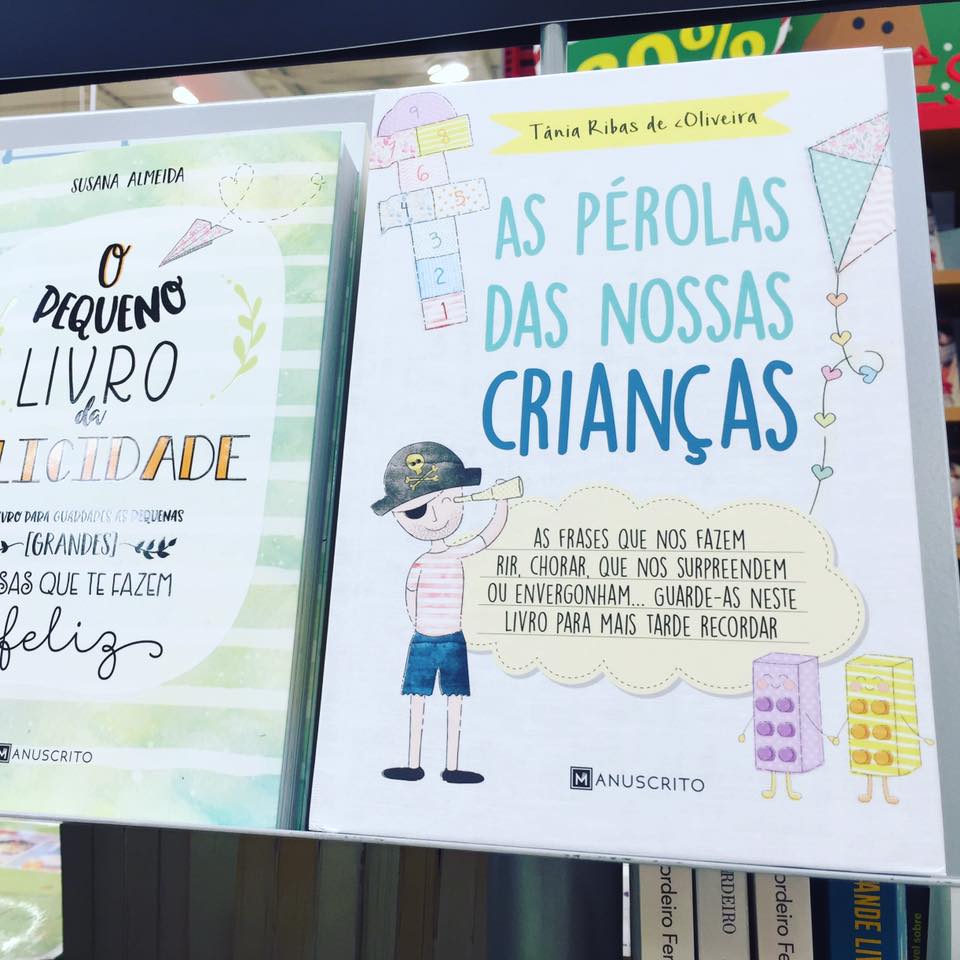 SUSANA ALMEIDA
O
PEQUENO
LIVRO
da
LICIDADE
LIVRO PARA GUARDARES AS PEQUENAS
[GRANDES]
SAS QUE TE FAZEM
feliz
MANUSCRITO
Tânia Ribas de Oliveira
AS PÉROLAS
DAS NOSSAS
CRIANÇAS
AS FRASES QUE NOS FAZEM
RIR, CHORAR, QUE NOS SURPREENDEM
OU ENVERGONHAM... GUARDE-AS NESTE
LIVRO PARA MAIS TARDE RECORDAR
MANUSCRITO
9
8
7
6
4 5
3
2
1
ordeiro Fer
RDEIRO
ordeiro Fer
ANDE LIV
vel sobre